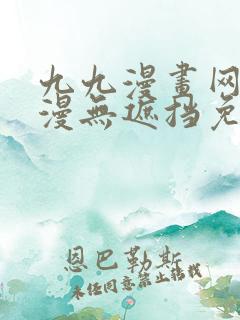 九九漫畫网
漫無遮挡免
恩巴勒斯
未经同意禁止转载